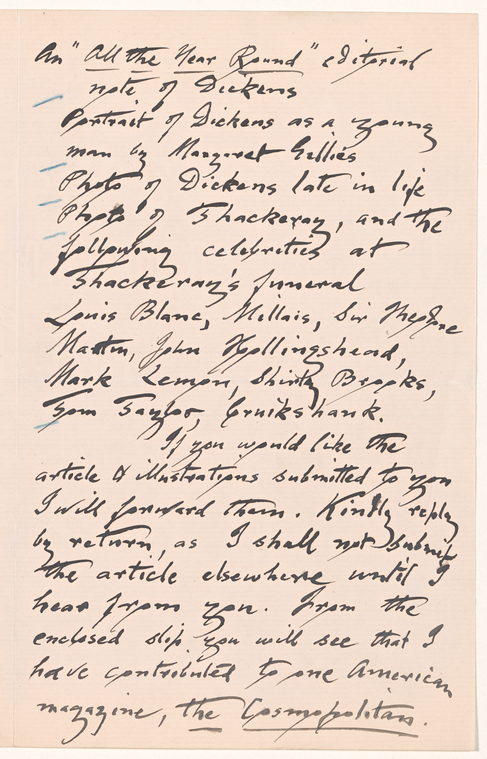 An "All the Year Round" editorial
note of Dickens
Portrait of Dickens as a young
man by Margaret Gillies
Photo of Dickens late in life
Photo of Thackeray, and the
following celebrities at
Thackeray's funeral
Louis Blanc, Millais, Sir Theodore
Martin, John Hollingshead,
Mark Lemon, Shirley Brooks,
Tom Taylor, Cruikshank.
If you would like the
article & illustrations submitted to you
I will forward them. Kindly reply
by return, as I shall not submit
the article elsewhere until I
hear from you. From the
enclosed slip you will see that I
have contributed to one American
magazine, the Cosmopolitan.